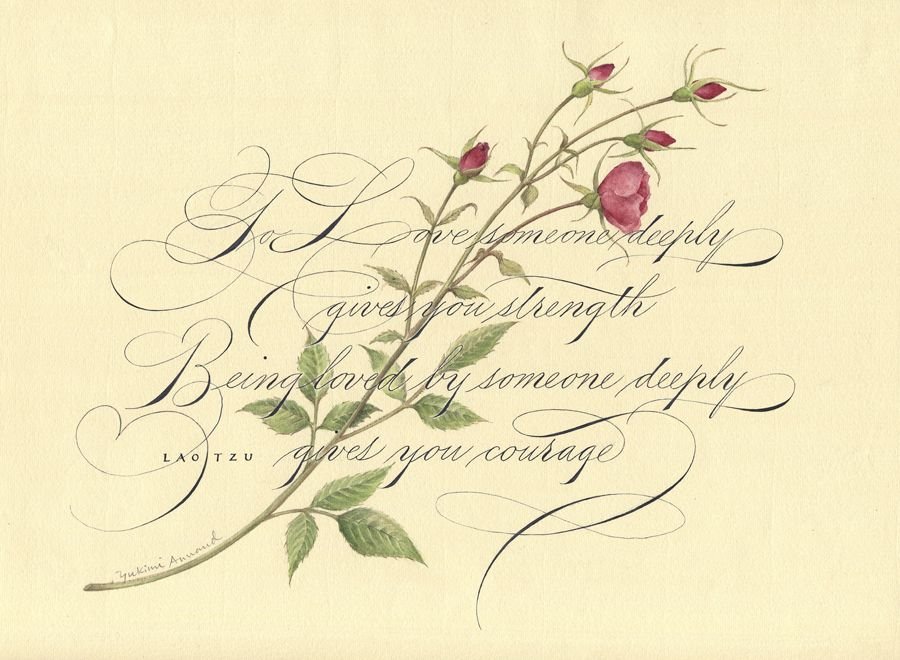 To Love someone deeply
gives you strength
Being loved by someone deeply
LAO TZU gives you courage
Yukimi Annand